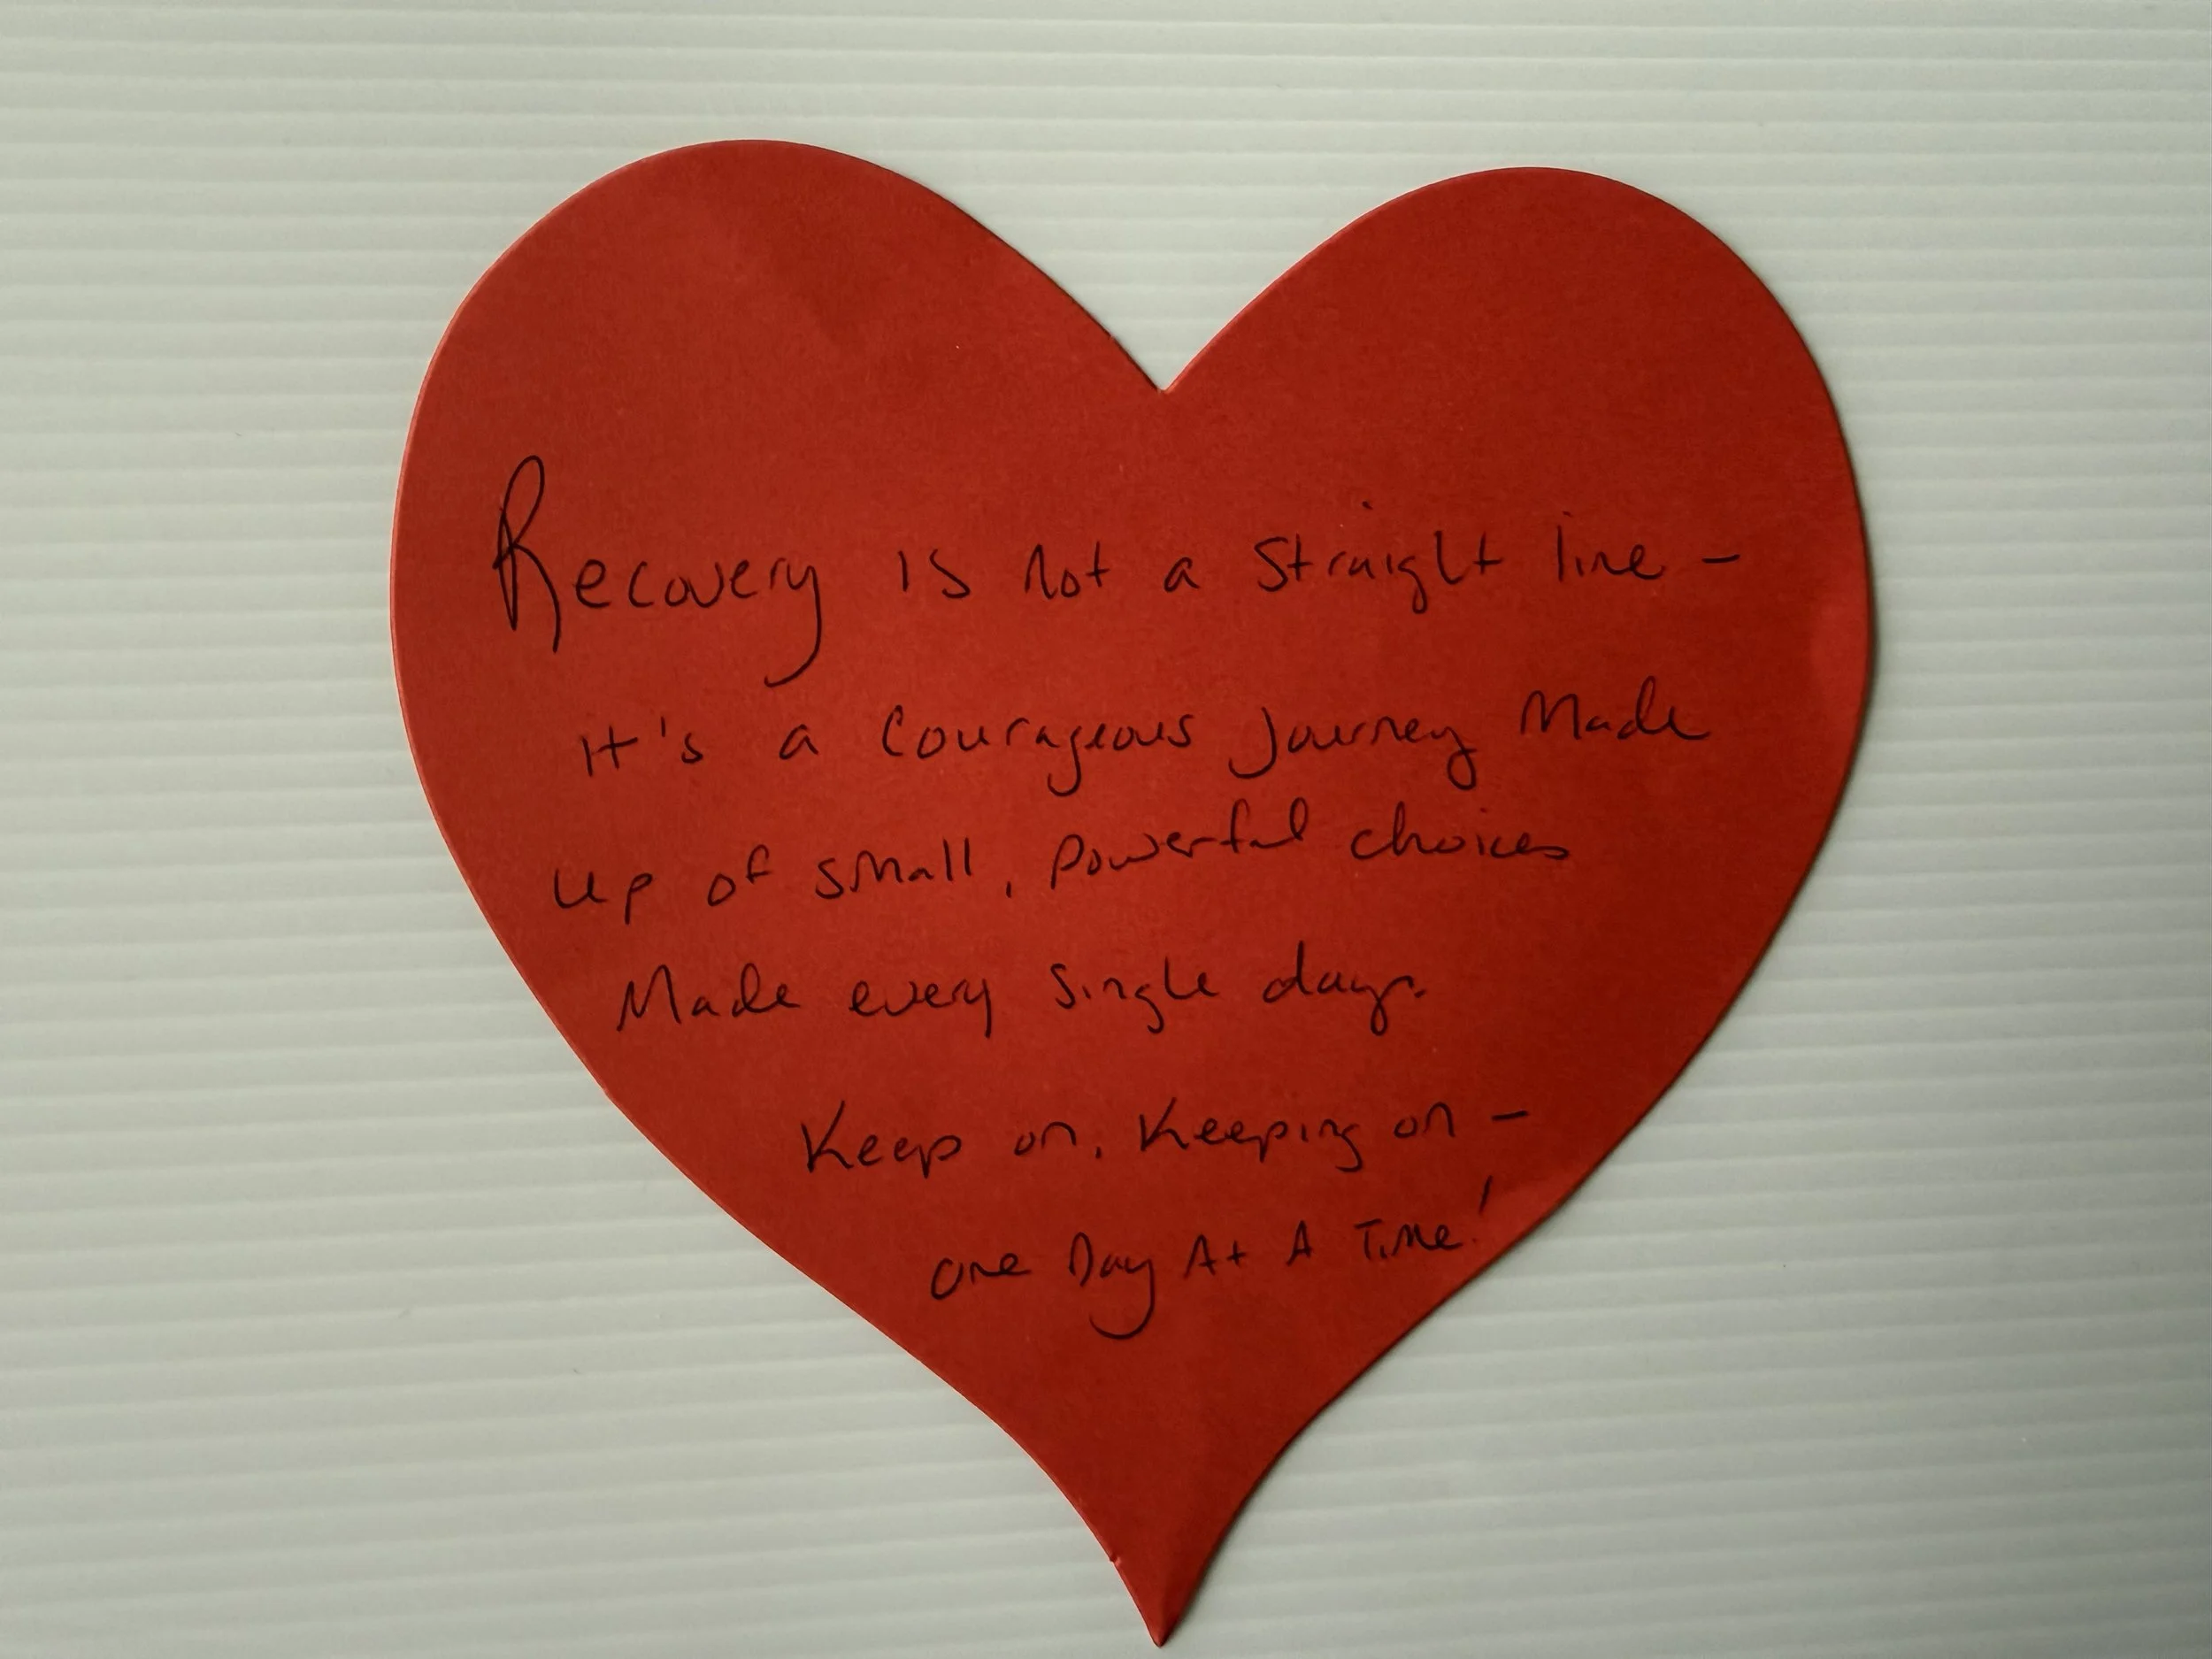 Recovery is not a straight line -
it's a courageous journey made
up of small, powerful choices
made every single day.
Keep on, keeping on -
one Day At A Time!